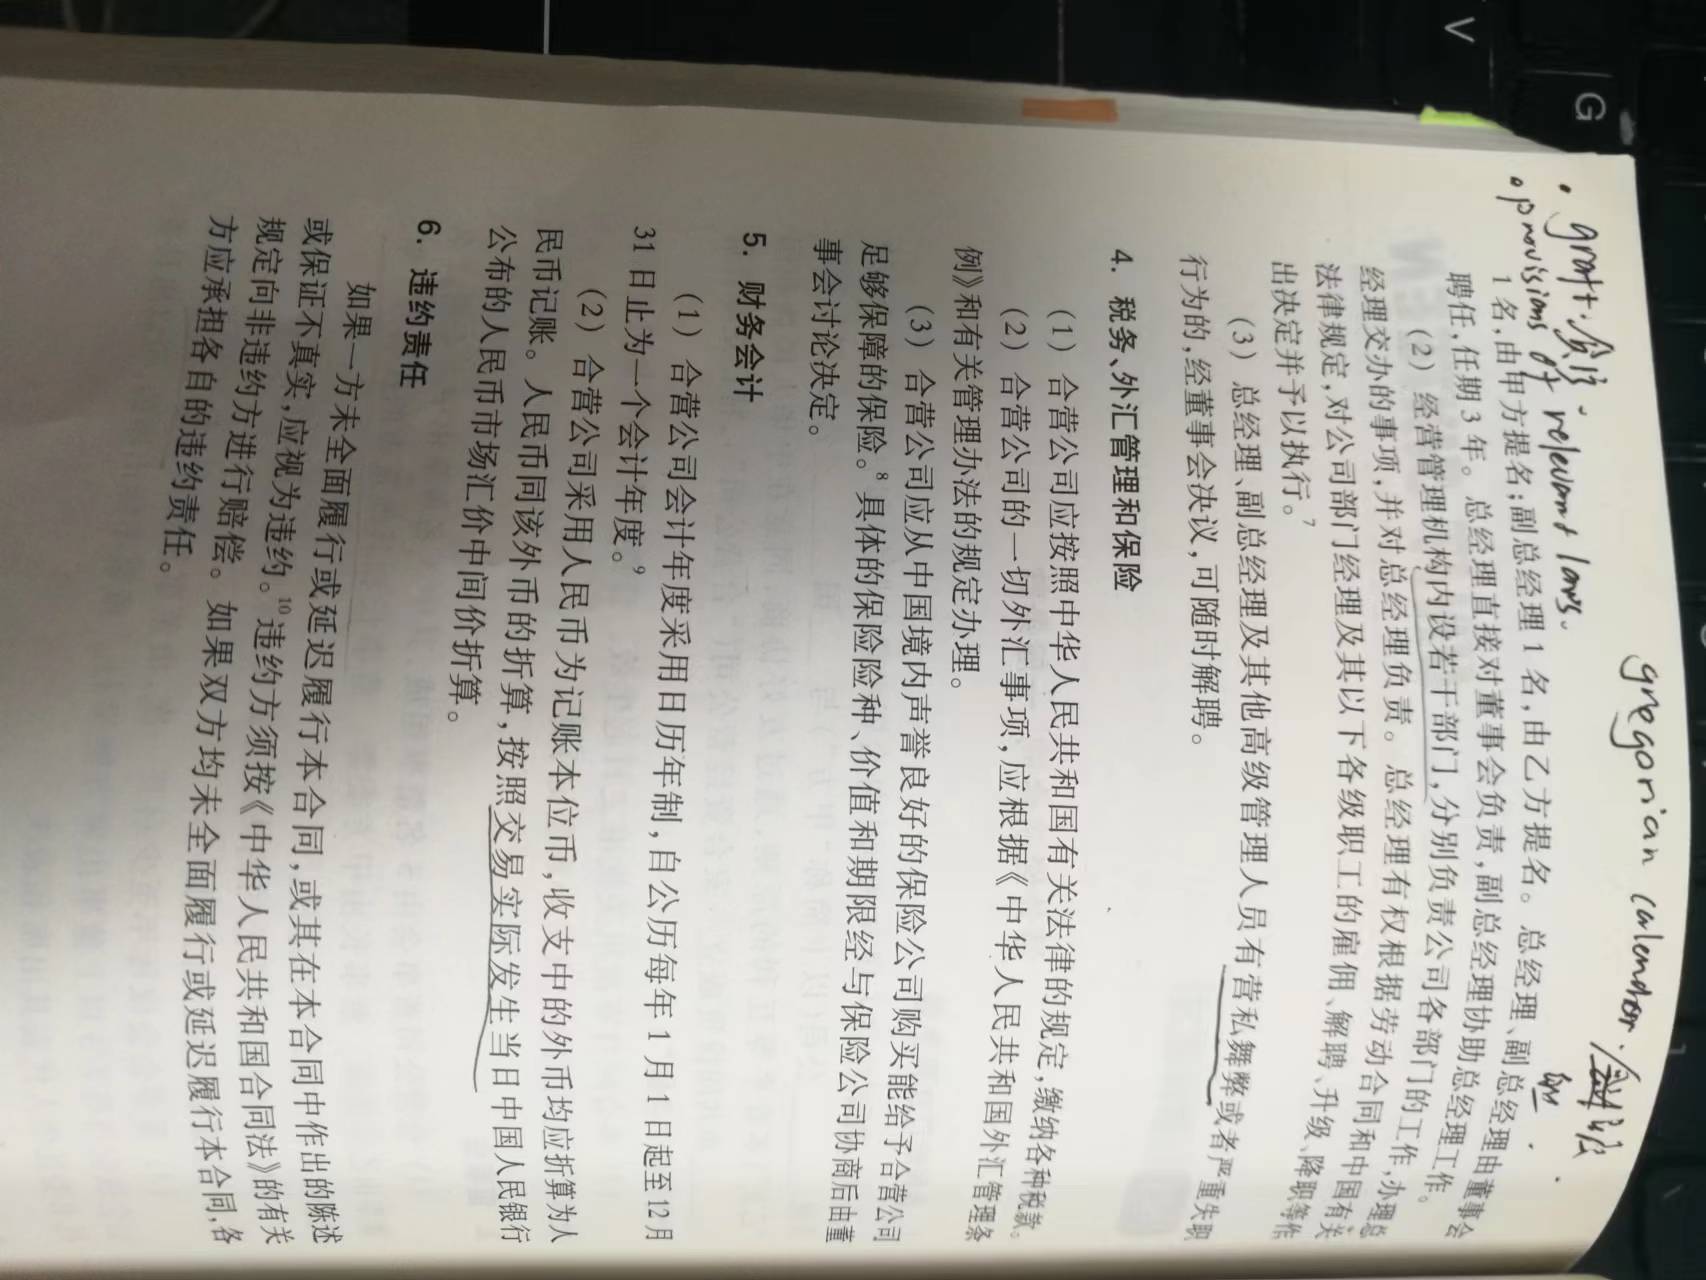 gregorian calendar.
• graft. 贪污.
• provisions of relevant laws.
1 名,由甲方提名;副总经理 1 名,由乙方提名。总经理、副总经理由董事会
聘任,任期 3 年。总经理直接对董事会负责,副总经理协助总经理工作。
(2) 经营管理机构内设若干部门,分别负责公司各部门的工作,办理总
经理交办的事项,并对总经理负责。总经理有权根据劳动合同和中国有关
法律规定,对公司部门经理及其以下各级职工的雇佣、解聘、升级、降职等作
出决定并予以执行。7
(3) 总经理、副总经理及其他高级管理人员有营私舞弊或者严重失职
行为的,经董事会决议,可随时解聘。
4. 税务、外汇管理和保险
(1) 合营公司应按照中华人民共和国有关法律的规定,缴纳各种税款。
(2) 合营公司的一切外汇事项,应根据《中华人民共和国外汇管理条
例》和有关管理办法的规定办理。
(3) 合营公司应从中国境内声誉良好的保险公司购买能给予合营公司
足够保障的保险。8 具体的保险险种、价值和期限经与保险公司协商后由董
事会讨论决定。
5. 财务会计
(1) 合营公司会计年度采用日历年制,自公历每年 1 月 1 日起至 12 月
31 日止为一个会计年度。9
(2) 合营公司采用人民币为记账本位币,收支中的外币均应折算为人
民币记账。人民币同该外币的折算,按照交易实际发生当日中国人民银行
公布的人民币市场汇价中间价折算。
6. 违约责任
如果一方未全面履行或延迟履行本合同,或其在本合同中作出的陈述
或保证不真实,应视为违约。10 违约方须按《中华人民共和国合同法》的有关
规定向非违约方进行赔偿。如果双方均未全面履行或延迟履行本合同,各
方应承担各自的违约责任。
V
G